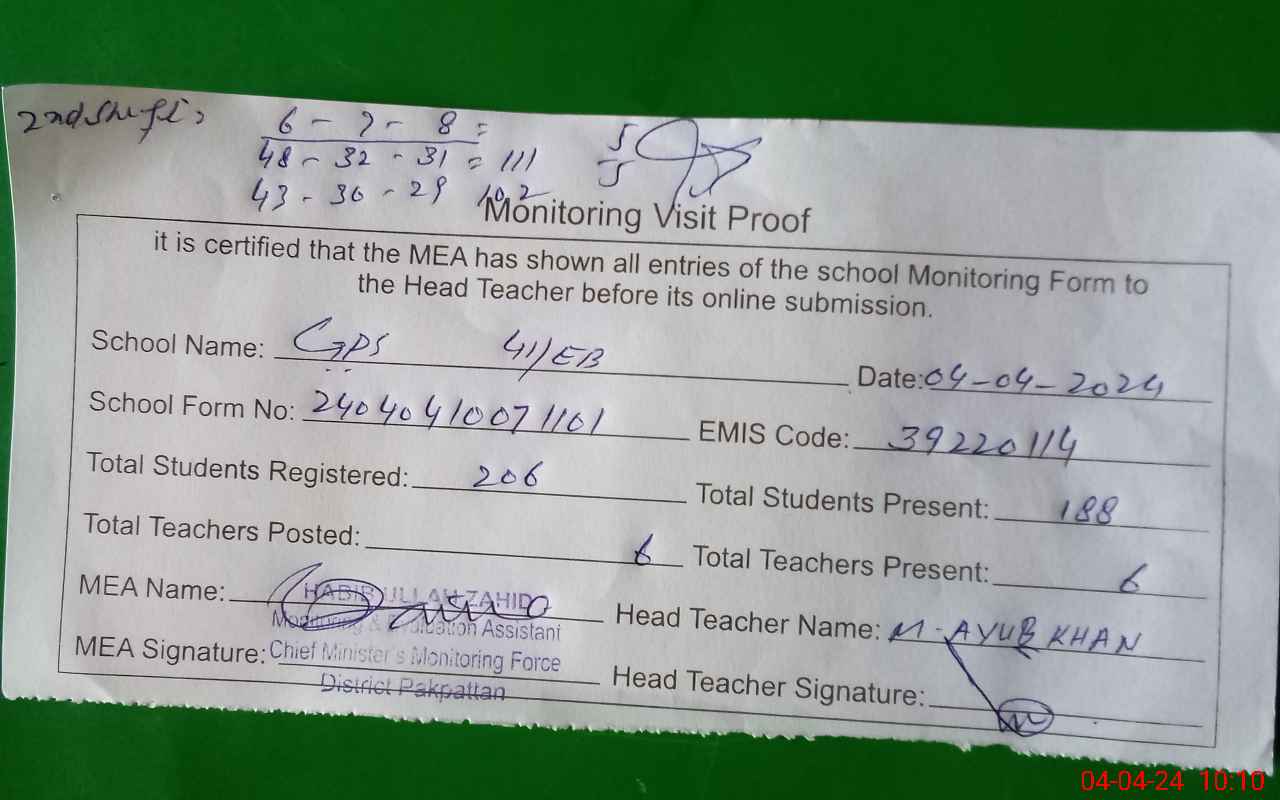 2nd Shift:
6 - 7 - 8 =
48 - 32 - 31 = 111
43 - 30 - 29 102
5
5
Monitoring Visit Proof
it is certified that the MEA has shown all entries of the school Monitoring Form to
the Head Teacher before its online submission.
School Name: GPS 41/EB Date: 04-04-2024
School Form No: 24040410071101 EMIS Code: 39220114
Total Students Registered: 206 Total Students Present: 188
Total Teachers Posted: 6 Total Teachers Present: 6
MEA Name: HABIB ULLAH ZAHID Head Teacher Name: M-AYUB KHAN
Monitoring & Evaluation Assistant
MEA Signature: Chief Minister's Monitoring Force Head Teacher Signature:
District Pakpattan
04-04-24 10:10